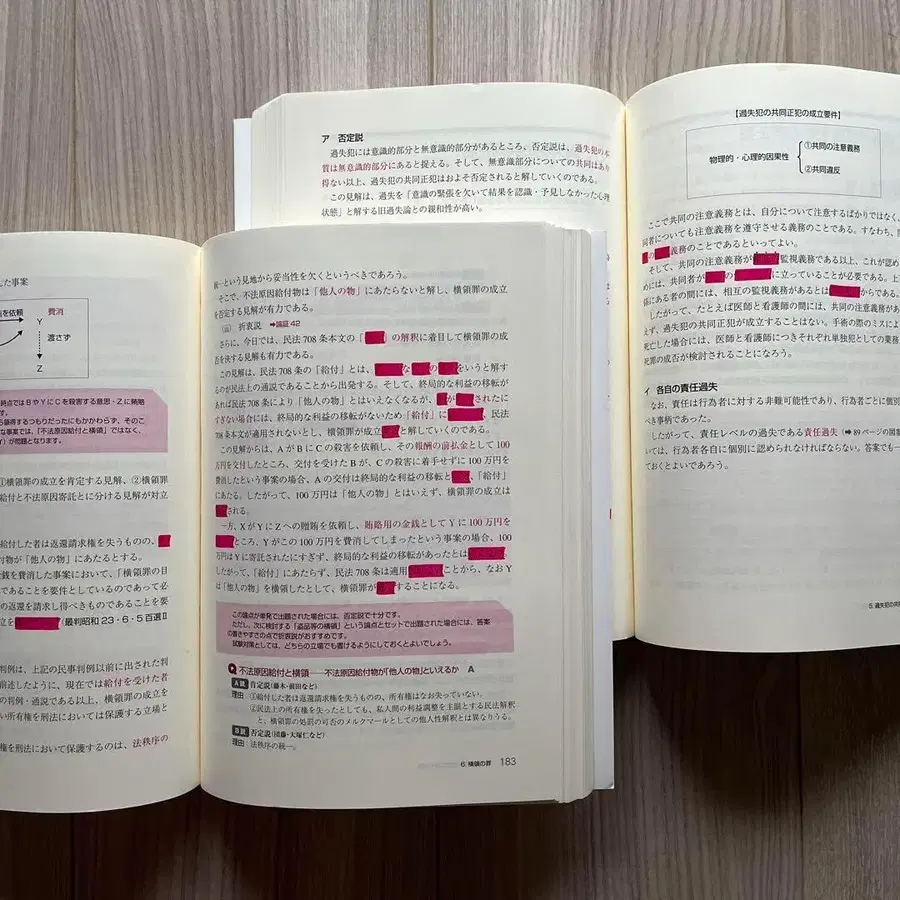 ア 否定説
過失犯には意識的部分と無意識的部分があるところ、否定説は、過失犯の本
質は無意識的部分にあると捉える。そして、無意識部分についての共同はあり
得ない以上、過失犯の共同正犯はおよそ否定されると解していくのである。
この見解は、過失を「意識の緊張を欠いて結果を認識・予見しなかった心理
状態」と解する旧過失論との親和性が高い。
【過失犯の共同正犯の成立要件】
物理的・心理的因果性
①共同の注意義務
②共同違反
ここで共同の注意義務とは、自分について注意するばかりではなく、
同者についても注意義務を遵守させる義務のことである。すなわち、
の 義務のことであるといってよい。
そして、共同の注意義務が 監視義務である以上、これが認め
めには、共同者が の に立っていることが必要である。上
係にある者の間には、相互の監視義務があるとは からである。
したがって、たとえば医師と看護師の間には、共同の注意義務があ
えず、過失犯の共同正犯が成立することはない。手術の際のミスによ
死亡した場合には、医師と看護師につきそれぞれ単独犯としての業務
死罪の成否が検討されることになろう。
イ 各自の責任過失
なお、責任は行為者に対する非難可能性であり、行為者ごとに個別
べき事柄であった。
したがって、責任レベルの過失である責任過失(➡89ページの図
いては、行為者各自に個別に認められなければならない。答案でも一
ておくとよいであろう。
5. 過失犯の共同
した事案
を依頼
Y
費消
渡さず
Z
時点ではBやYにCを殺害する意思・Zに賄賂
す。
ら領得するつもりだったにもかかわらず、そのこ
な事案では、「不法原因給付と横領」ではなく、
が問題となります。
①横領罪の成立を肯定する見解、②横領
給付と不法原因寄託とに分ける見解が対立
給付した者は返還請求権を失うものの、
付物が「他人の物」にあたるとする。
金銭を費消した事案において、「横領罪の目
であることを要件としているのであって必
の返還を請求し得べきものであることを要
立を (最判昭和23・6・5百選Ⅱ
判例は、上記の民事判例以前に出された判
前述したように、現在では給付を受けた者
の判例・通説である以上、横領罪の成立を
い所有権を刑法においては保護する立場と
権を刑法において保護するのは、法秩序の
統一という見地から妥当性を欠くというべきであろう。
そこで、不法原因給付物は「他人の物」にあたらないと解し、横領罪の成立
を否定する見解が有力である。
(ⅲ) 折衷説 ➡論証42
さらに、今日では、民法708条本文の「 」の解釈に着目して横領罪の成
否を決する見解も有力である。
この見解は、民法708条の「給付」とは、 な の をいうと解す
るのが民法上の通説であることから出発する。そして、終局的な利益の移転が
あれば民法708条により「他人の物」とはいえなくなるが、 が されたに
すぎない場合には、終局的な利益の移転がないため「給付」に 、民法
708条本文が適用されないとし、横領罪が成立 と解していくのである。
この見解からは、AがBにCの殺害を依頼し、その報酬の前払金として100
万円を交付したところ、交付を受けたBが、Cの殺害に着手せずに100万円を
費消したという事案の場合、Aの交付は終局的な利益の移転と 、「給付」
にあたる。したがって、100万円は「他人の物」とはいえず、横領罪の成立は
される。
一方、XがYにZへの贈賄を依頼し、賄賂用の金銭としてYに100万円を
ところ、Yがこの100万円を費消してしまったという事案の場合、100
万円はYに寄託されたにすぎず、終局的な利益の移転があったとは 。
したがって、「給付」にあたらず、民法708条は適用 ことから、なおY
は「他人の物」を横領したとして、横領罪が することになる。
この論点が単発で出題された場合には、否定説で十分です。
ただし、次に検討する「盗品等の横領」という論点とセットで出題された場合には、答案
の書きやすさの点で折衷説がおすすめです。
試験対策としては、どちらの立場でも書けるようにしておくとよいでしょう。
Q 不法原因給付と横領──不法原因給付物が「他人の物」といえるか A
A説 肯定説(藤木・前田など)
理由:①給付した者は返還請求権を失うものの、所有権はなお失っていない。
②民法上の所有権を失ったとしても、私人間の利益調整を主眼とする民法解釈
と、横領罪の処罰の可否のメルクマールとしての他人性解釈とは異なりうる。
B説 否定説(団藤・大塚仁など)
理由:法秩序の統一。
6. 横領の罪 183